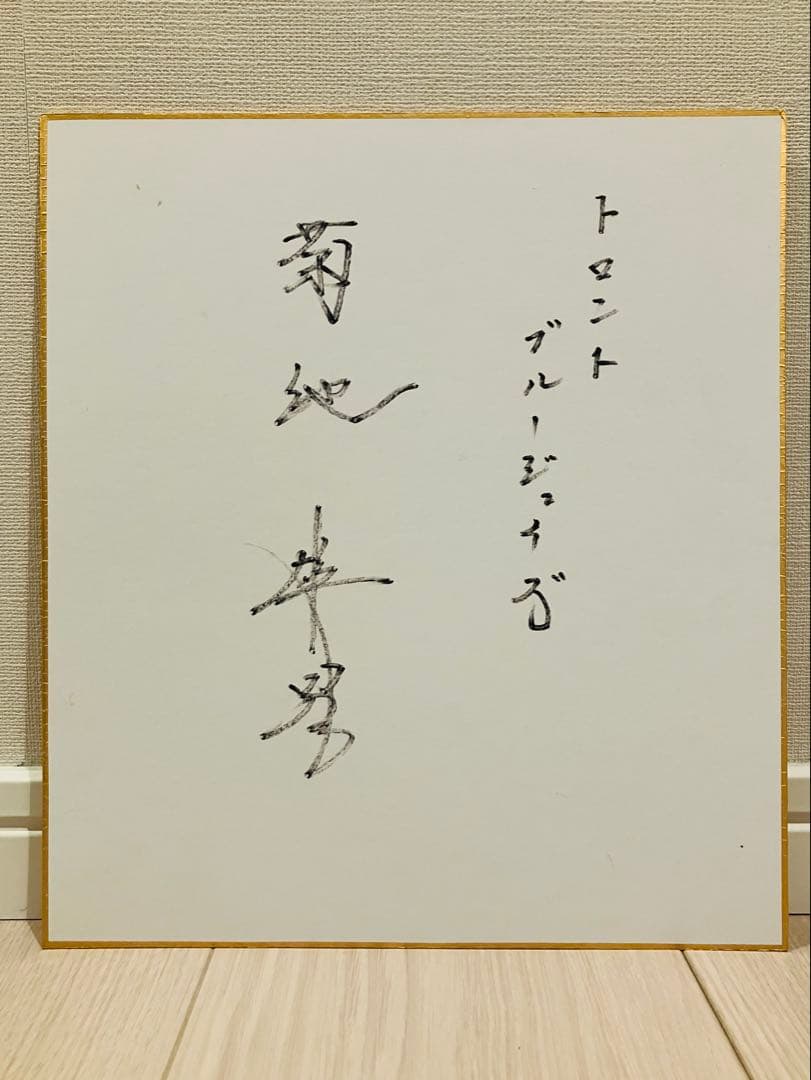 トロント
ブルージェイズ
菊池